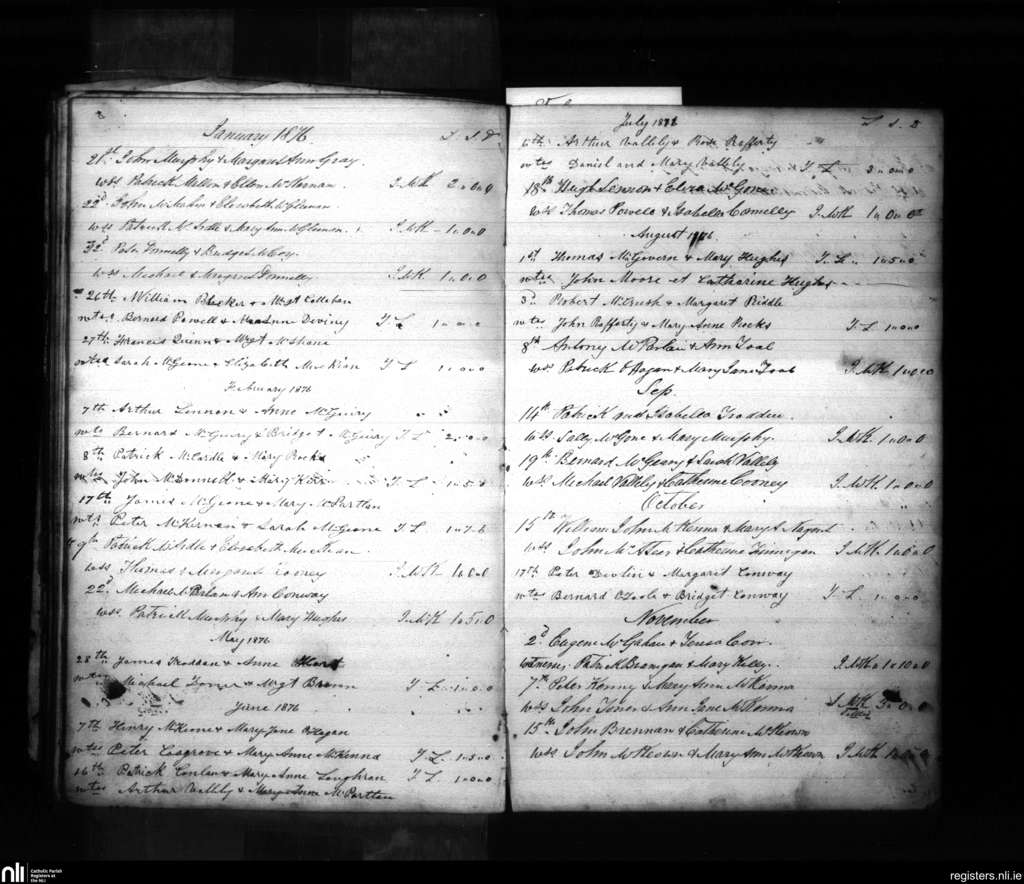 January 1876. £ s d
21st John Murphy & Margaret Ann Gray.
wss Patrick Mellon & Ellen McKernan. J. McK 2 0 0
22d John McMahon & Elizabeth
wss Patrick McArdle & Mary Ann J. McK 1 0 0
Peter Donnelly & Bridget McCoy.
wss Michael & Margaret Donnelly. J. McK 1 0 0
26th William & Margt Callahan
wtss Bernard Powell & Deviny T L 1 0 0
27th Francis Quinn & Margt McShane
wtss Sarah McGeone & Elizabeth T L 1 0 0
February 1876
7th Arthur Lennon & Anne McGuiry
wts Bernard McGuiry & Bridget McGuiry T L 2 0 0
8th Patrick McCardle & Mary Rocks
wtss John McDonnell & Mary T L 1 5
17th James McGeone & Mary McPartlan
wts Peter McKernan & Sarah McGeone T L 1 7 6
Patrick McArdle & Elizabeth
wss Thomas & Margaret Cooney J. McK 1 0 0
22d Michael McParlan & Ann Conway
wss Patrick Murphy & Mary Hughes J. McK 1 5 0
May 1876
28th James Troddan & Anne
wtss Michael & Margt T L 1 0 0
June 1876
7th Henry McKeone & Mary Jane O'Hagan
wtss Peter Cosgrove & Mary Anne McKenna T L 1 5 0
16th Patrick Conlan & Mary Anne Loughran T L 1 0 0
wtss Arthur Vallily & Mary Anne McPartlan
July 1876 £ s. d
6th Arthur Vallily & Rose Rafferty
wtss Daniel and Mary Vallily T L 3 0 0
18th Hugh Lennon & Eliza McGone
wss Thomas Powell & Isabella Connelly J. McK 1 0 0
August 1876
1st Thomas McGovern & Mary Hughes T. L. 1 5 0
wtss John Moore et Catharine Hughes
3d Robert & Margaret Riddle
wtss John Rafferty & Mary Anne Rocks T L 1 0 0
8th Antony McParlan & Ann Toal
wss Patrick O'Hagan & Mary Jane Toal J. McK 1 0 0
Sep.
14th Patrick and Isabella Trodden.
wss Sally McGone & Mary Murphy. J. McK. 1 0 0
19th Bernard McGeary & Sarah Vallily
wss Michael Vallily & Catherine Cooney J. McK. 1 0 0
October
15th William John McKenna & Mary A.
wss John & Catherine Finnegan J. McK 1 0 0
17th Peter Devlin & Margaret Conway
wts Bernard O'Toole & Bridget Conway T L 1 0 0
November
2d Eugene McGahan & Teresa
Witnesses Patrick Branigan & Mary Kelly. J. McK 1 10 0
7th Peter Kenny & Mary Anne McKenna
wss John & Ann Jane McKenna J. McK 3 0 0
15th John Brennan & Catherine McKeown
wss John McKeown & Mary Ann McKeown J. McK
nli
Catholic Parish
Registers at
the NLI
registers.nli.ie